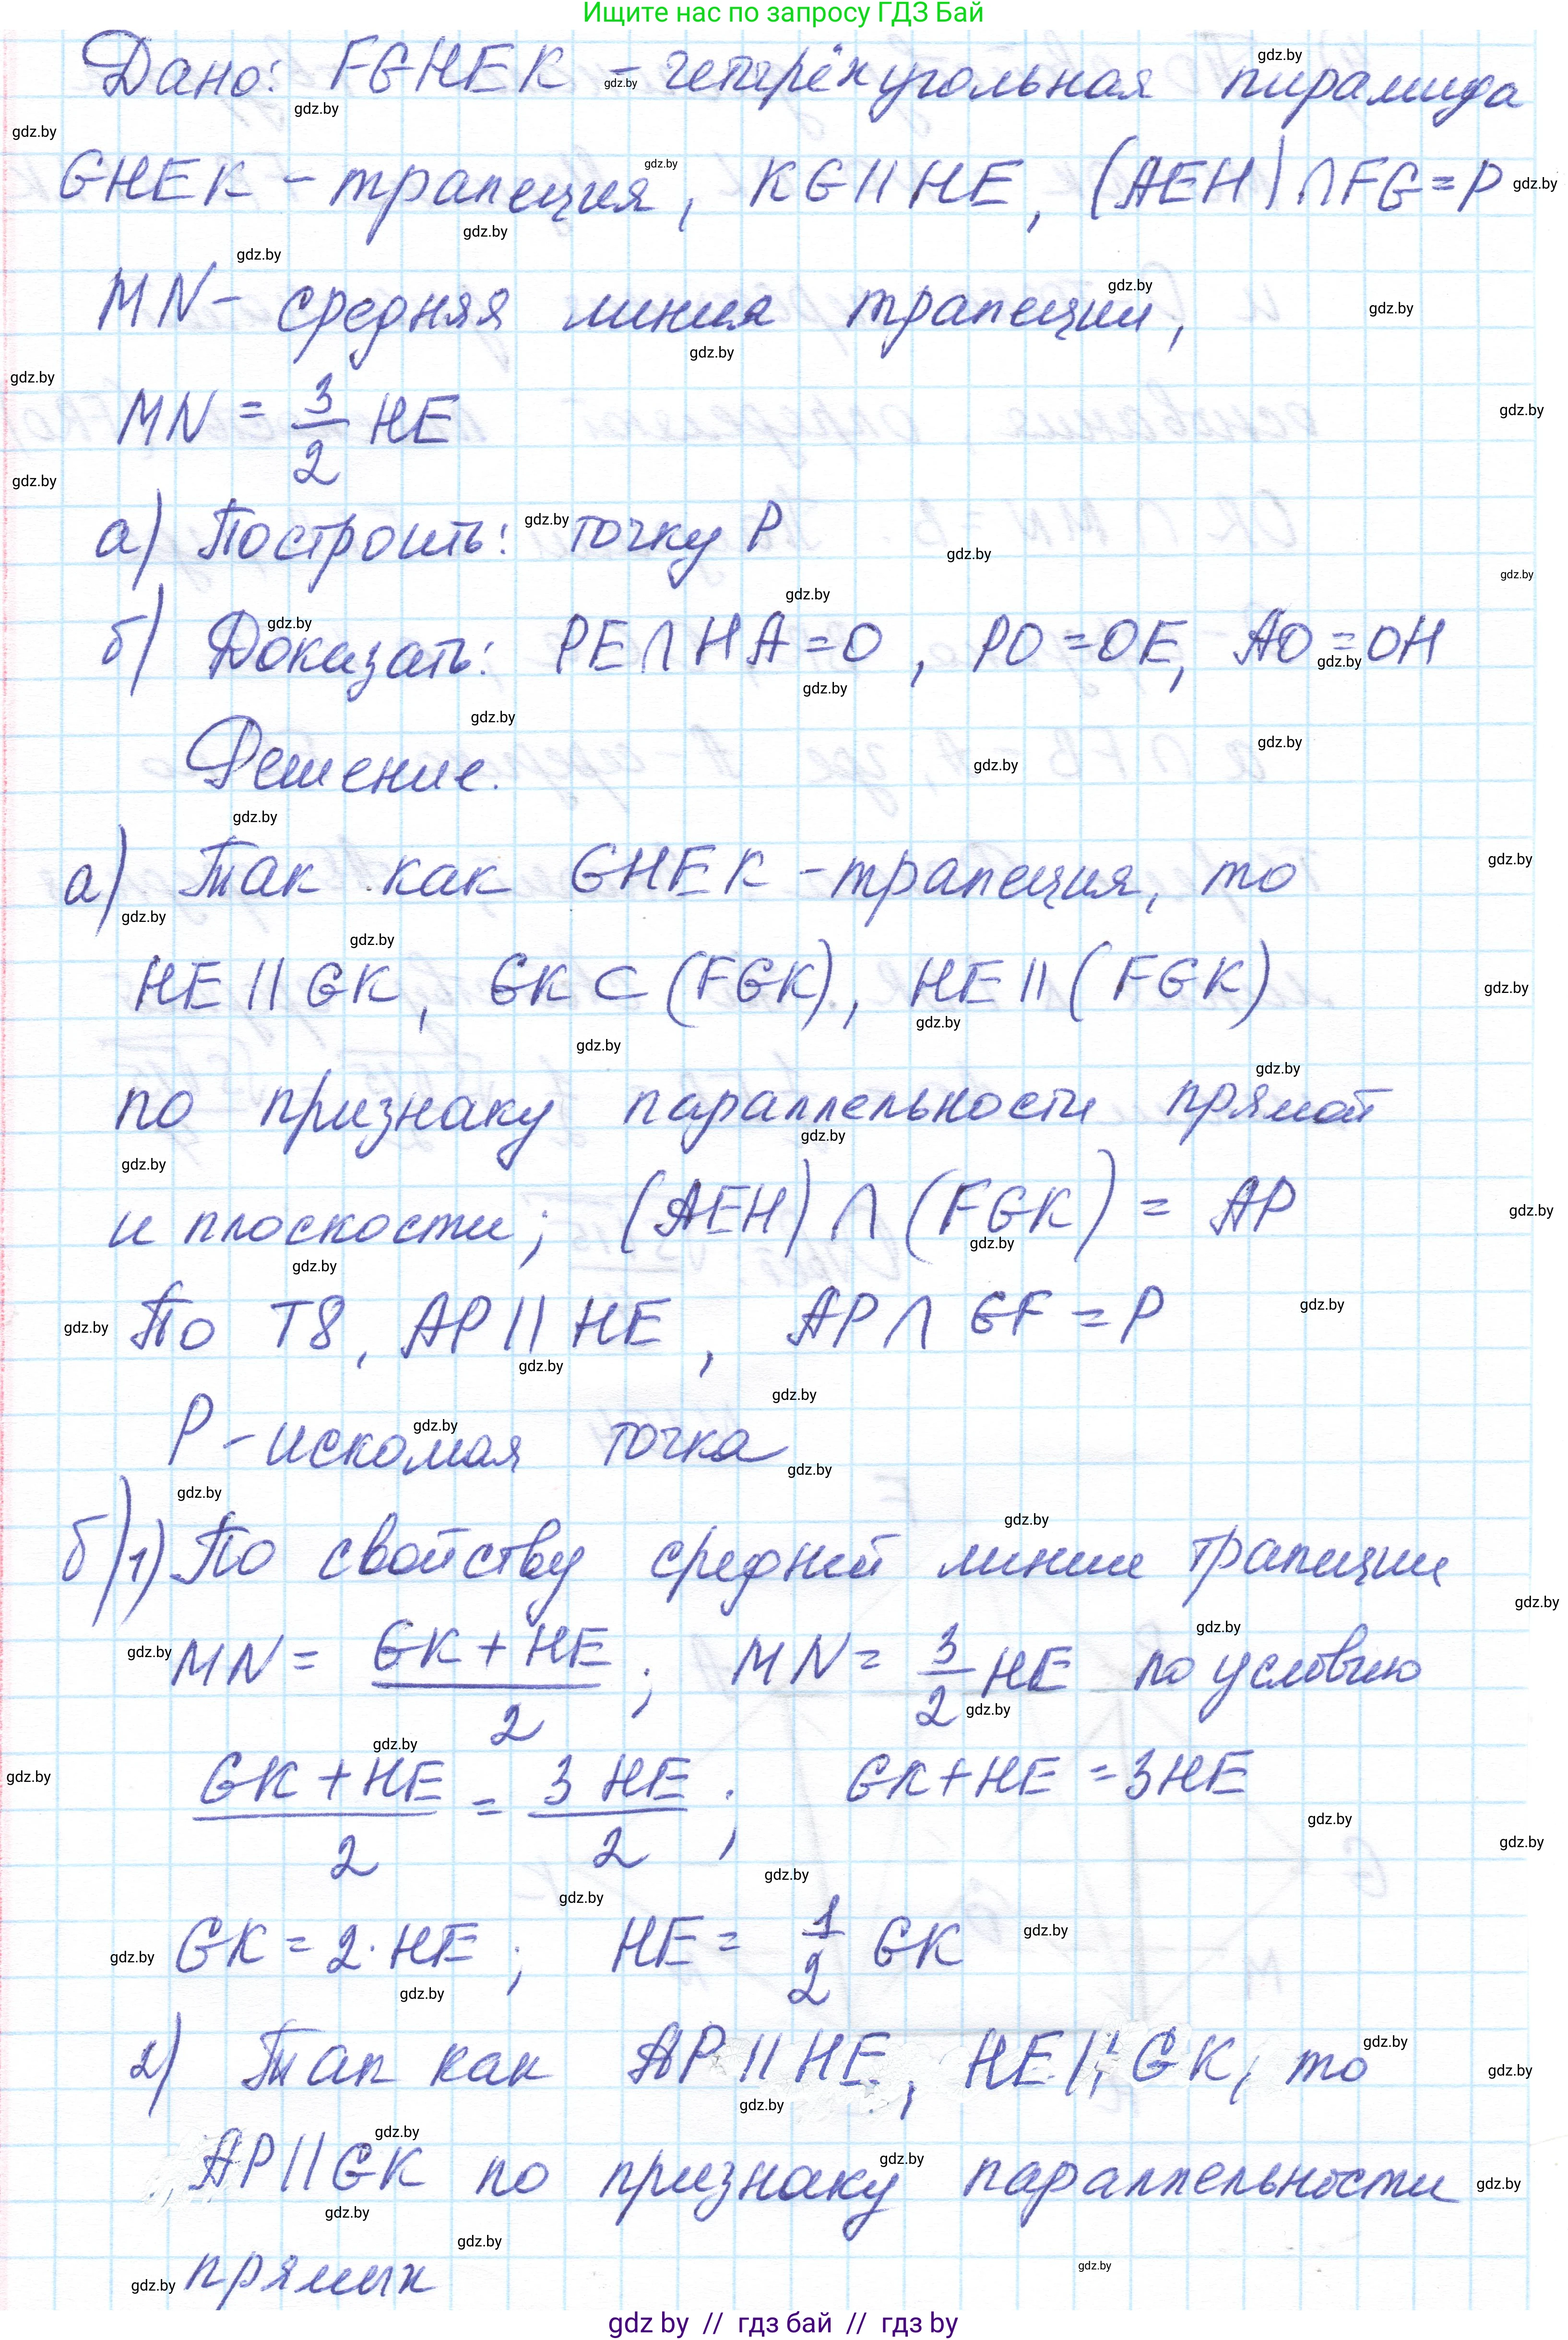 Ищите нас по запросу ГДЗ Бай
Дано: FGHEK – четырёхугольная пирамида
GHEK – трапеция, KG || HE, (AEH) ∩ FG = P
MN – средняя линия трапеции,
MN = 3/2 HE
а) Построить: точку P
б) Доказать: PE ∩ HA = O, PO = OE, AO = OH
Решение.
а) Так как GHEK – трапеция, то
HE || GK, GK ⊂ (FGK), HE || (FGK)
по признаку параллельности прямой
и плоскости; (AEH) ∩ (FGK) = AP
По Т8, AP || HE, AP ∩ GF = P
P – искомая точка
б) 1) По свойству средней линии трапеции
MN = (GK + HE)/2; MN = 3/2 HE по условию
(GK + HE)/2 = 3 HE/2; GK + HE = 3HE
GK = 2 · HE; HE = 1/2 GK
2) Так как AP || HE, HE || GK, то
AP || GK по признаку параллельности
прямых
gdz by // гдз бай // гдз by